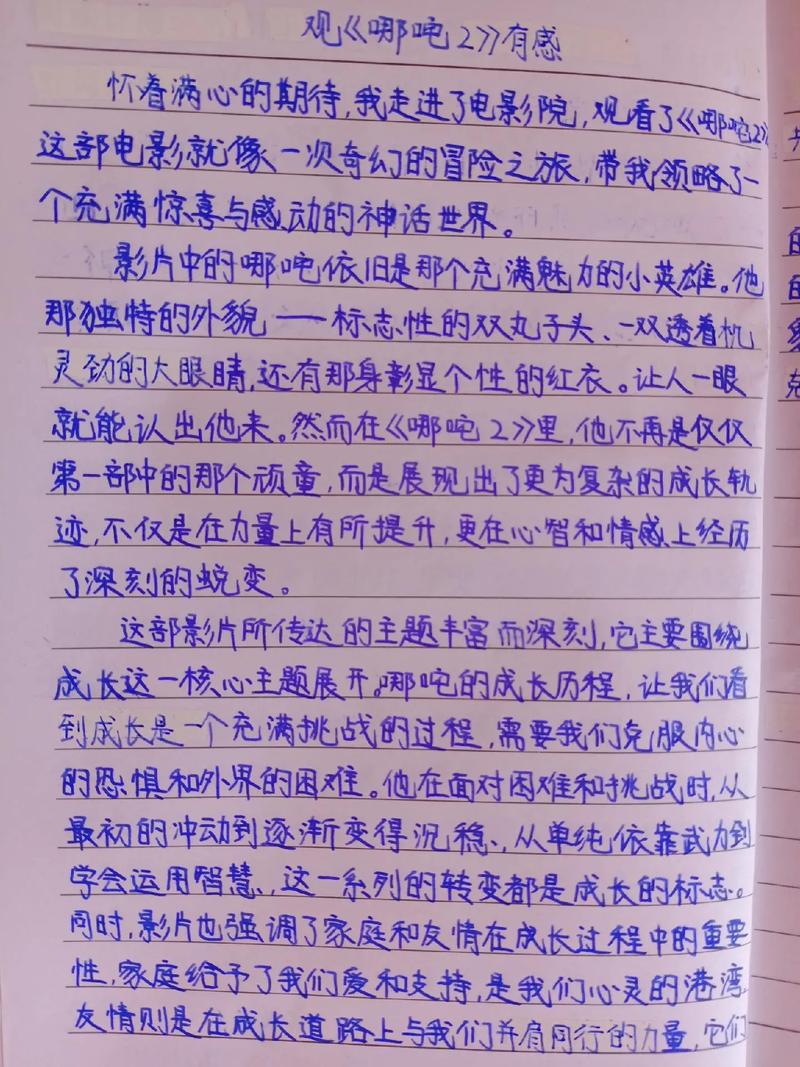 观《哪吒2》有感
怀着满心的期待,我走进了电影院,观看了《哪吒2》
这部电影就像一次奇幻的冒险之旅,带我领略了一
个充满惊喜与感动的神话世界。
影片中的哪吒依旧是那个充满魅力的小英雄。他
那独特的外貌——标志性的双丸子头、一双透着机
灵劲的大眼睛,还有那身彰显个性的红衣。让人一眼
就能认出他来。然而在《哪吒2》里,他不再是仅仅
第一部中的那个顽童,而是展现出了更为复杂的成长轨
迹,不仅是在力量上有所提升,更在心智和情感上经历
了深刻的蜕变。
这部影片所传达的主题丰富而深刻,它主要围绕
成长这一核心主题展开。哪吒的成长历程,让我们看
到成长是一个充满挑战的过程,需要我们克服内心
的恐惧和外界的困难。他在面对困难和挑战时,从
最初的冲动到逐渐变得沉稳、从单纯依靠武力到
学会运用智慧、这一系列的转变都是成长的标志。
同时,影片也强调了家庭和友情在成长过程中的重要
性,家庭给予了我们爱和支持,是我们心灵的港湾
友情则是在成长道路上与我们并肩同行的力量,它们